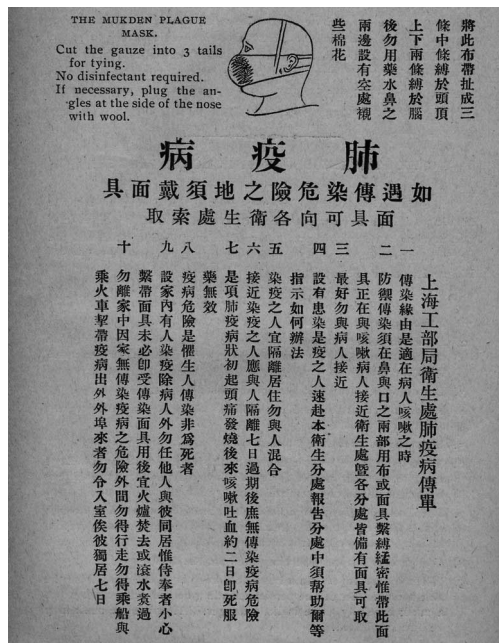 THE MUKDEN PLAGUE
MASK.
Cut the gauze into 3 tails
for tying.
No disinfectant required.
If necessary, plug the an-
gles at the side of the nose
with wool.
將此布帶扯成三
條中條縛於頭頂
上下兩條縛於腦
後勿用藥水鼻之
兩邊設有空處襯
些棉花
病疫肺
具面戴須地之險危染傳遇如
取索處生衛各向可具面
上海工部局衛生處肺疫病傳單
一 傳染緣由是適在病人咳嗽之時
二 防禦傳染須在鼻與口之兩部用布或面具繫縛綿密惟帶此面
具正在與咳嗽病人接近衛生處曁各分處皆備有面具可取
三 最好勿與病人接近
四 設有患染是疫之人速赴本衛生分處報告分處中須帮助爾等
指示如何辦法
五 染疫之人宜隔離居住勿與人混合
六 接近染疫之人應與人隔離七日過期後庶無傳染疫病危險
七 是項肺疫病狀初起頭痛發燒後來咳嗽吐血約二日卽死服
藥無效
八 疫病危險是懼生人傳染非爲死者
九 設家內有人染疫除病人外勿任他人與彼同居惟侍奉者小心
繫帶面具未必卽受傳染面具用後宜火爐焚去或滾水煑過
十 勿離家中因家無傳染疫病之危險外間勿得行走勿得乘船與
乘火車挈帶疫病出外外埠來者勿令入室俟彼獨居七日